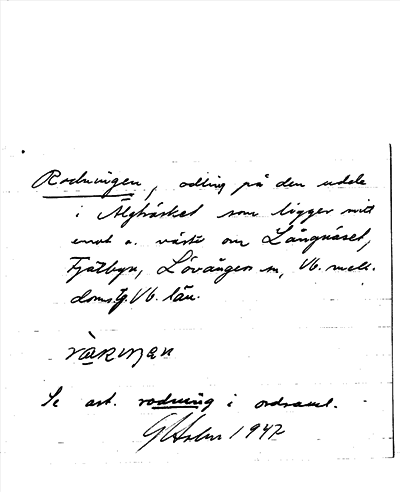 Rodningen, odling på den udde
i Älgträsket som ligger mitt
emot o. väster om Långnäset,
Fjälbyn, Lövångers sn, Vb. mell.
doms. Vb. län.
Se art. rodning i ordsaml.
GHolm 1947